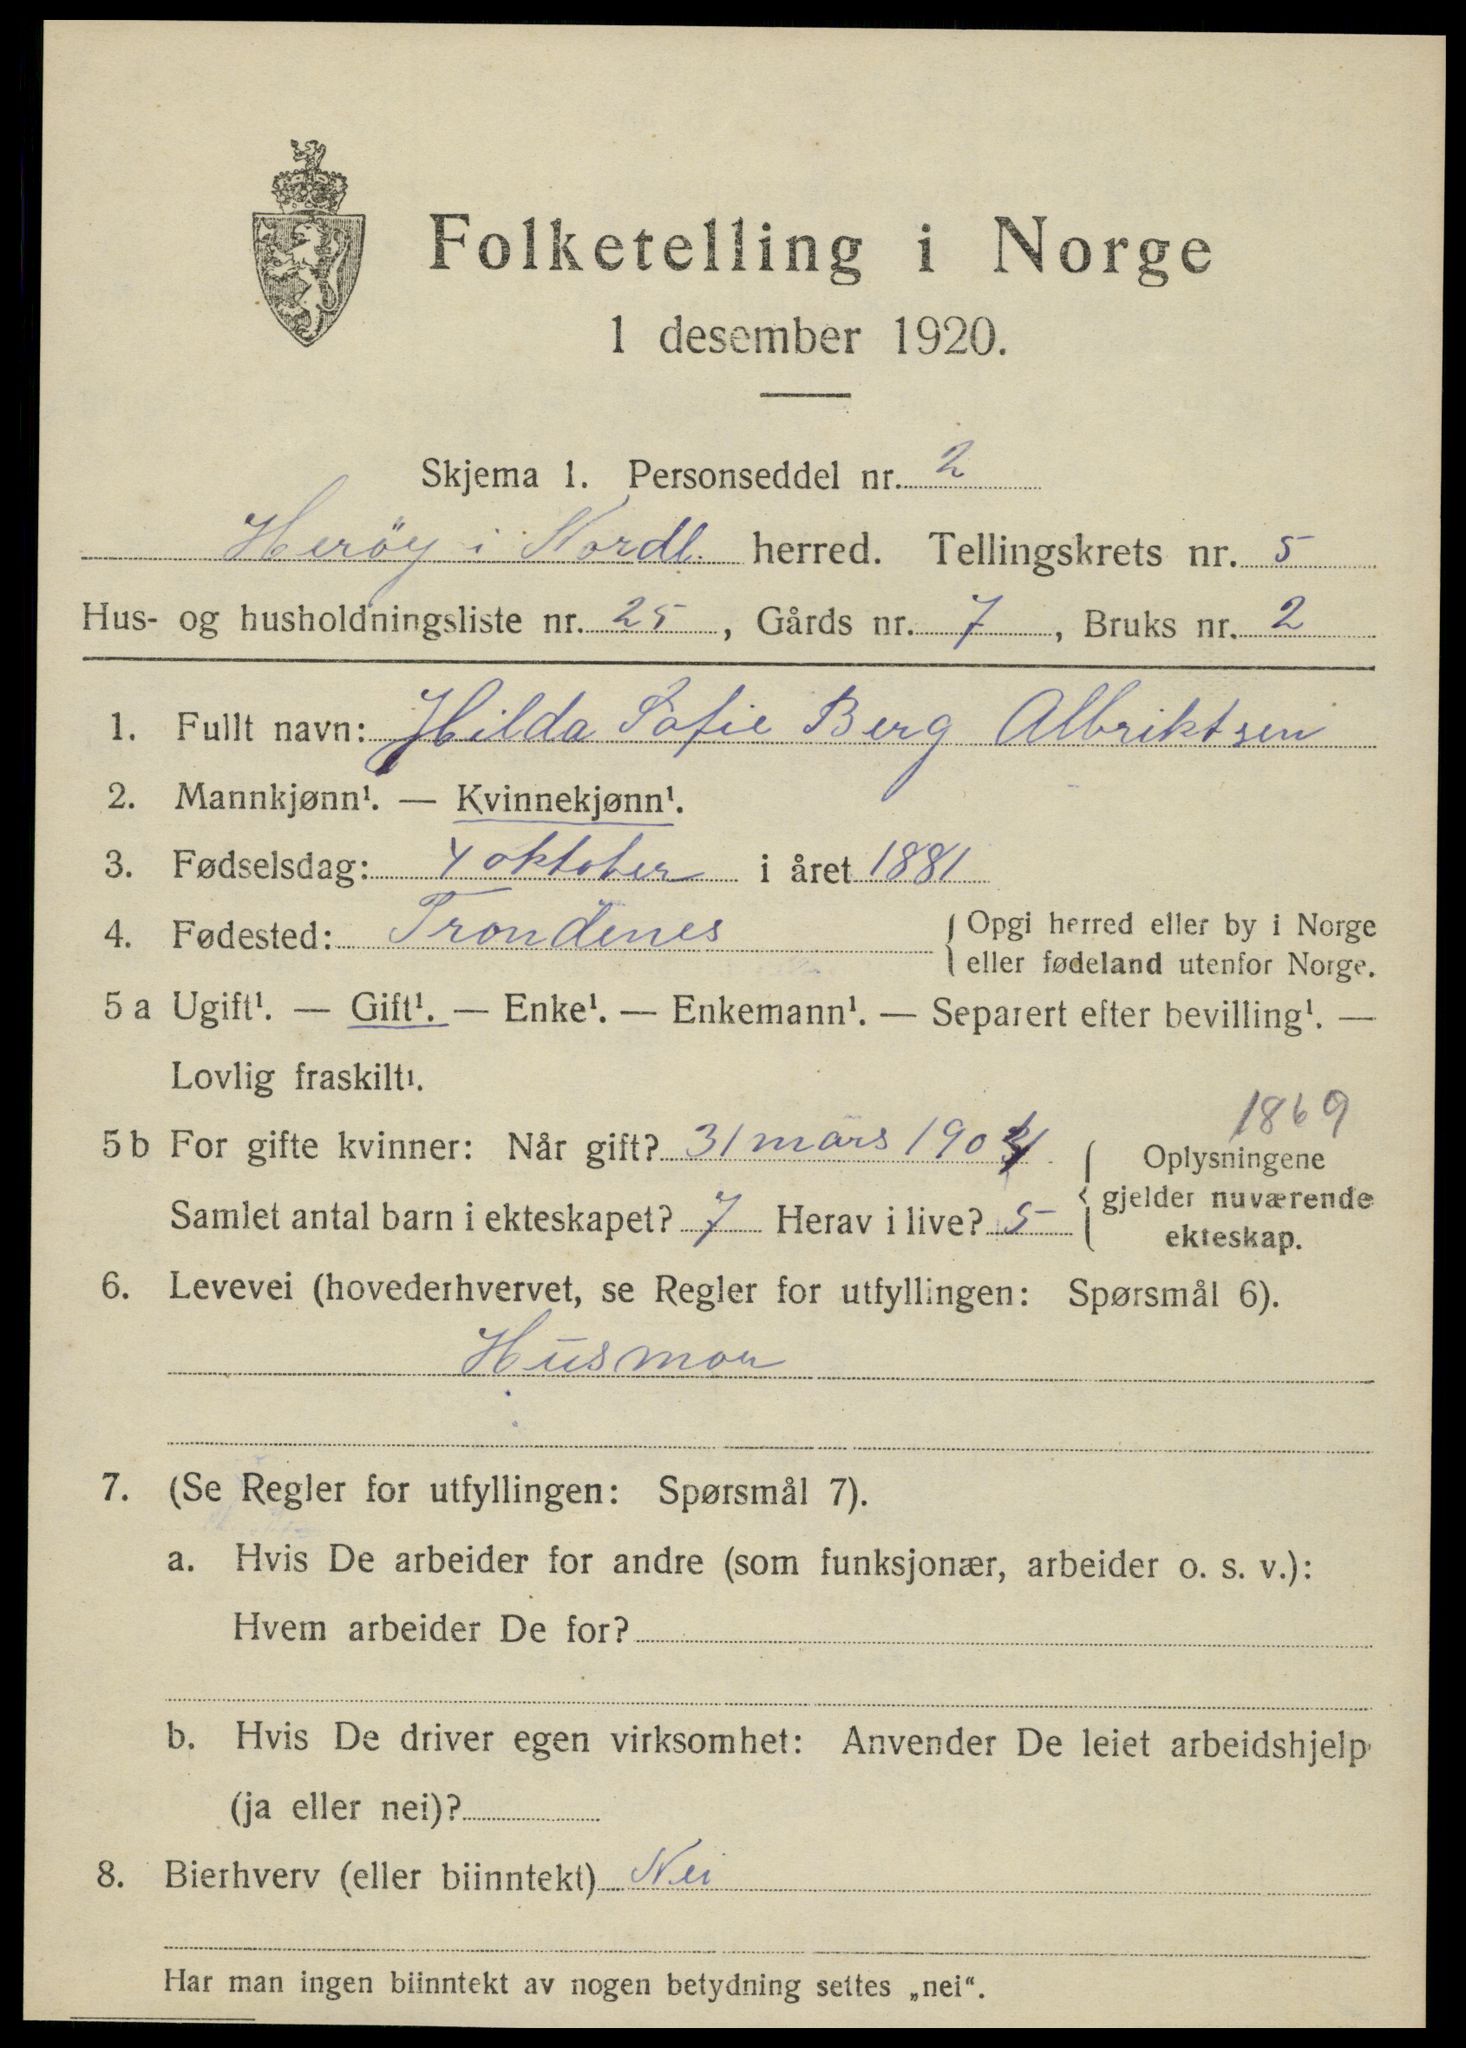 Folketelling i Norge
1 desember 1920.
Skjema 1. Personseddel nr. 2
Herøy i Nordl. herred. Tellingskrets nr. 5
Hus- og husholdningsliste nr. 25, Gårds nr. 7, Bruks nr. 2
1. Fullt navn: Hilda Sofie Berg Albriktsen
2. Mannkjønn¹. — Kvinnekjønn¹.
3. Fødselsdag: 4 oktober i året 1881
4. Fødested: Trondenes { Opgi herred eller by i Norge
eller fødeland utenfor Norge.
5 a Ugift¹. — Gift¹. — Enke¹. — Enkemann¹. — Separert efter bevilling¹. —
Lovlig fraskilt¹.
1869
5 b For gifte kvinner: Når gift? 31 mars { Oplysningene
gjelder nuværende
ekteskap.
Samlet antal barn i ekteskapet? 7 Herav i live? 5
6. Levevei (hovederhvervet, se Regler for utfyllingen: Spørsmål 6).
Husmor
7. (Se Regler for utfyllingen: Spørsmål 7).
a. Hvis De arbeider for andre (som funksjonær, arbeider o. s. v.):
Hvem arbeider De for?
b. Hvis De driver egen virksomhet: Anvender De leiet arbeidshjelp
(ja eller nei)?
8. Bierhverv (eller biinntekt) Nei
Har man ingen biinntekt av nogen betydning settes „nei“.